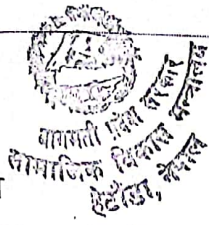 बागमती प्रदेश सरकार
सामाजिक विकास मन्त्रालय
हेटौंडा, नेपाल